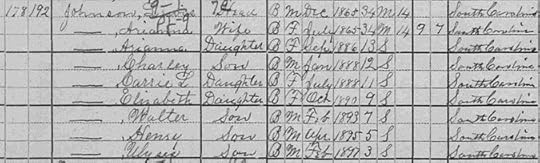 178 192 Johnson, Head B M Dec 1865 34 M 14 South Carolina
—, Wife B F July 1865 34 M 14 9 7 South Carolina
—, Daughter B F 1886 13 S South Carolina
—, Charley Son B M Jan 1888 12 S South Carolina
—, Carrie L Daughter B F July 1888 11 S South Carolina
—, Elizabeth Daughter B F Oct 1890 9 S South Carolina
—, Walter Son B M Feb 1893 7 S South Carolina
—, Henry Son B M Apr 1895 5 S South Carolina
—, Son B M Feb 1897 3 S South Carolina